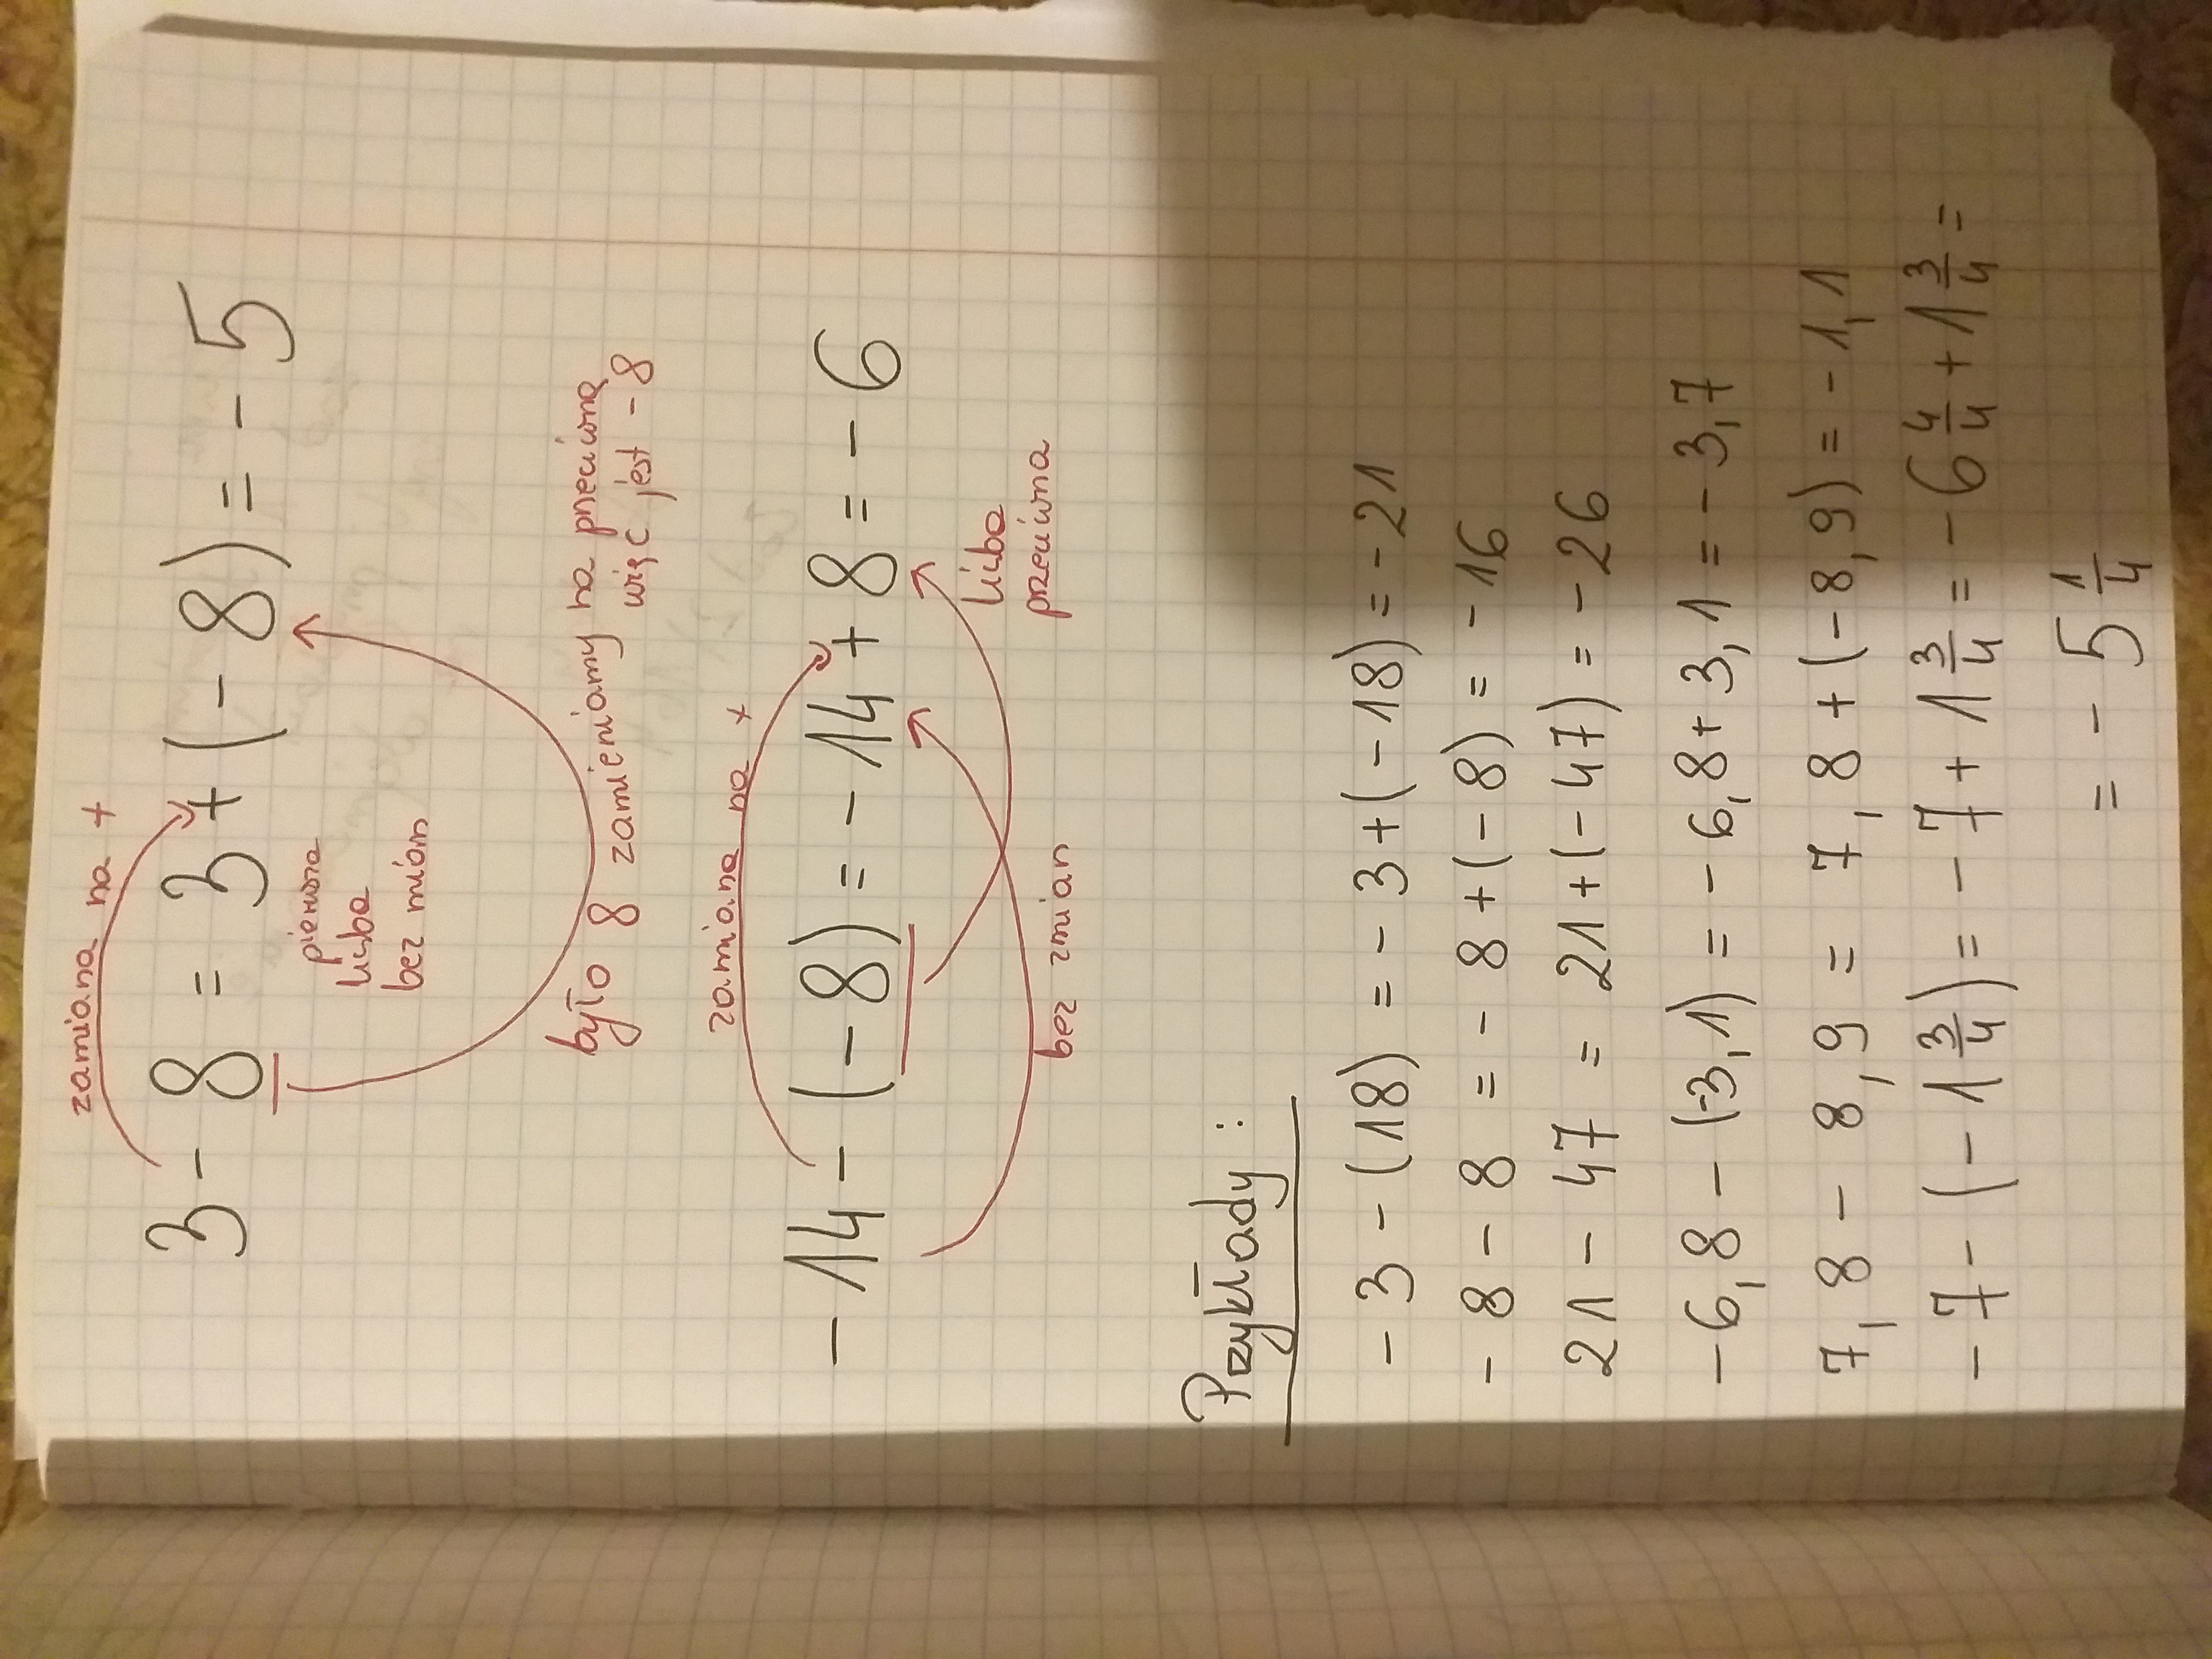 zamiana na +
3 - 8 = 3 + (- 8) = - 5
pierwsza
liczba
bez mian
było 8 zamieniamy na przeciwną
więc jest - 8
zamiana na +
- 14 - (- 8) = - 14 + 8 = - 6
liczba
przeciwna
bez zmian
Przykłady:
- 3 - (18) = - 3 + (- 18) = - 21
- 8 - 8 = - 8 + (- 8) = - 16
21 - 47 = 21 + (- 47) = - 26
- 6,8 - (-3,1) = - 6,8 + 3,1 = - 3,7
7,8 - 8,9 = 7,8 + (- 8,9) = - 1,1
- 7 - (- 1 3/4) = - 7 + 1 3/4 = - 6 4/4 + 1 3/4 =
= - 5 1/4